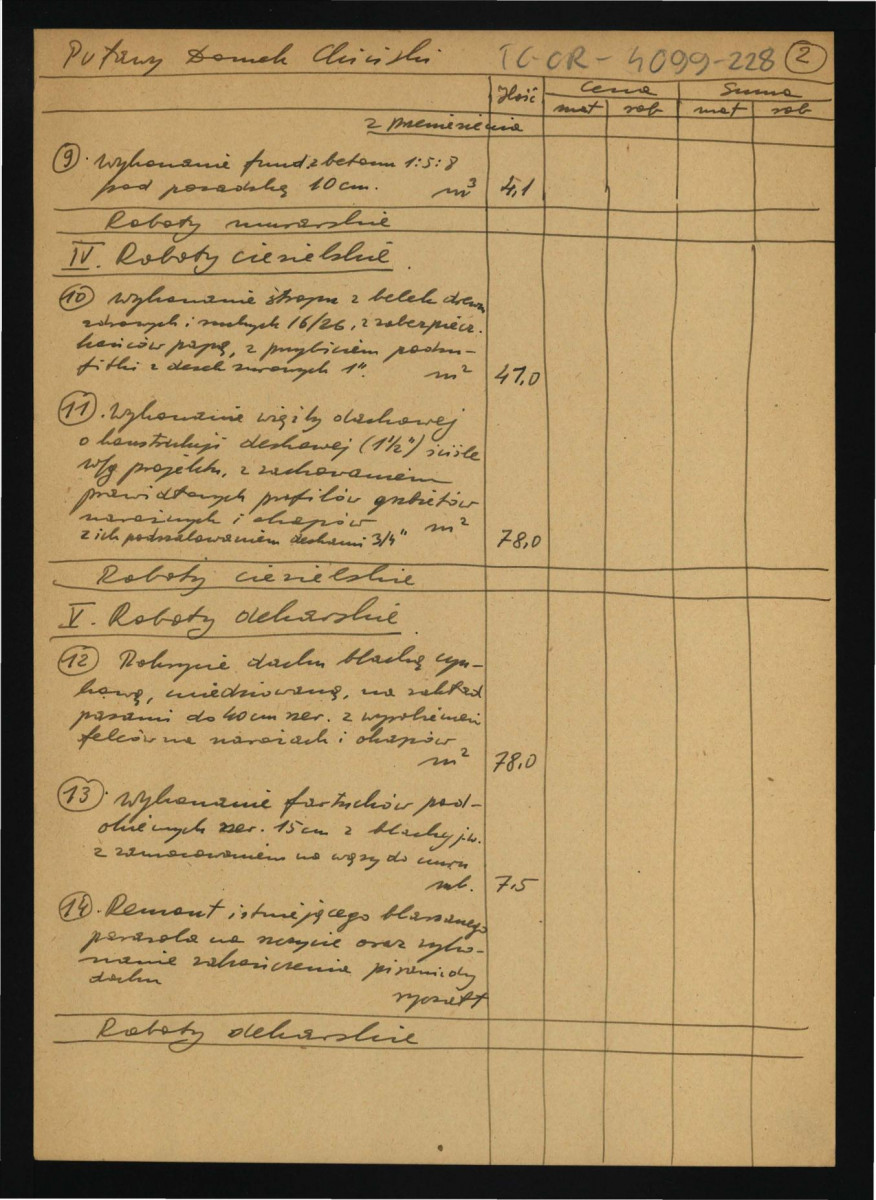 Puławy Domek Chiński TG-OR-4099-228 2
Ilość Cena Suma
mat rob mat rob
z przeniesienia
9. Wykonanie fund. z betonu 1:5:8
pod posadzkę 10 cm. m³ 4,1
Roboty murarskie
IV. Roboty ciesielskie
10 Wykonanie stropu z belek drewn
zdrowych i suchych 16/26, z zabezpiecz.
końców papą, z przybiciem podsu-
fitki z desek surowych 1". m² 47,0
11. Wykonanie więźby dachowej
o konstrukcji deskowej (1½") ściśle
w/g projektu, z zachowaniem
prawidłowych profilów grzbietów
narożnych i okapów m²
z ich podszalowaniem deskami 3/4" 78,0
Roboty ciesielskie
V. Roboty dekarskie
12 Pokrycie dachu blachą cyn-
kową, miedziowaną, na zakład
pasami do 40 cm szer. z wyrobieniem
felców na narożach i okapów
m² 78,0
13. Wykonanie fartuchów pod-
okiennych szer. 15 cm z blachy j.w.
z zamocowaniem na wąsy do muru
mb. 7,5
14. Remont istniejącego blaszanego
parasola na szczycie oraz wyko-
nanie zakończenia piramidy
dachu
ryczałt
Roboty dekarskie